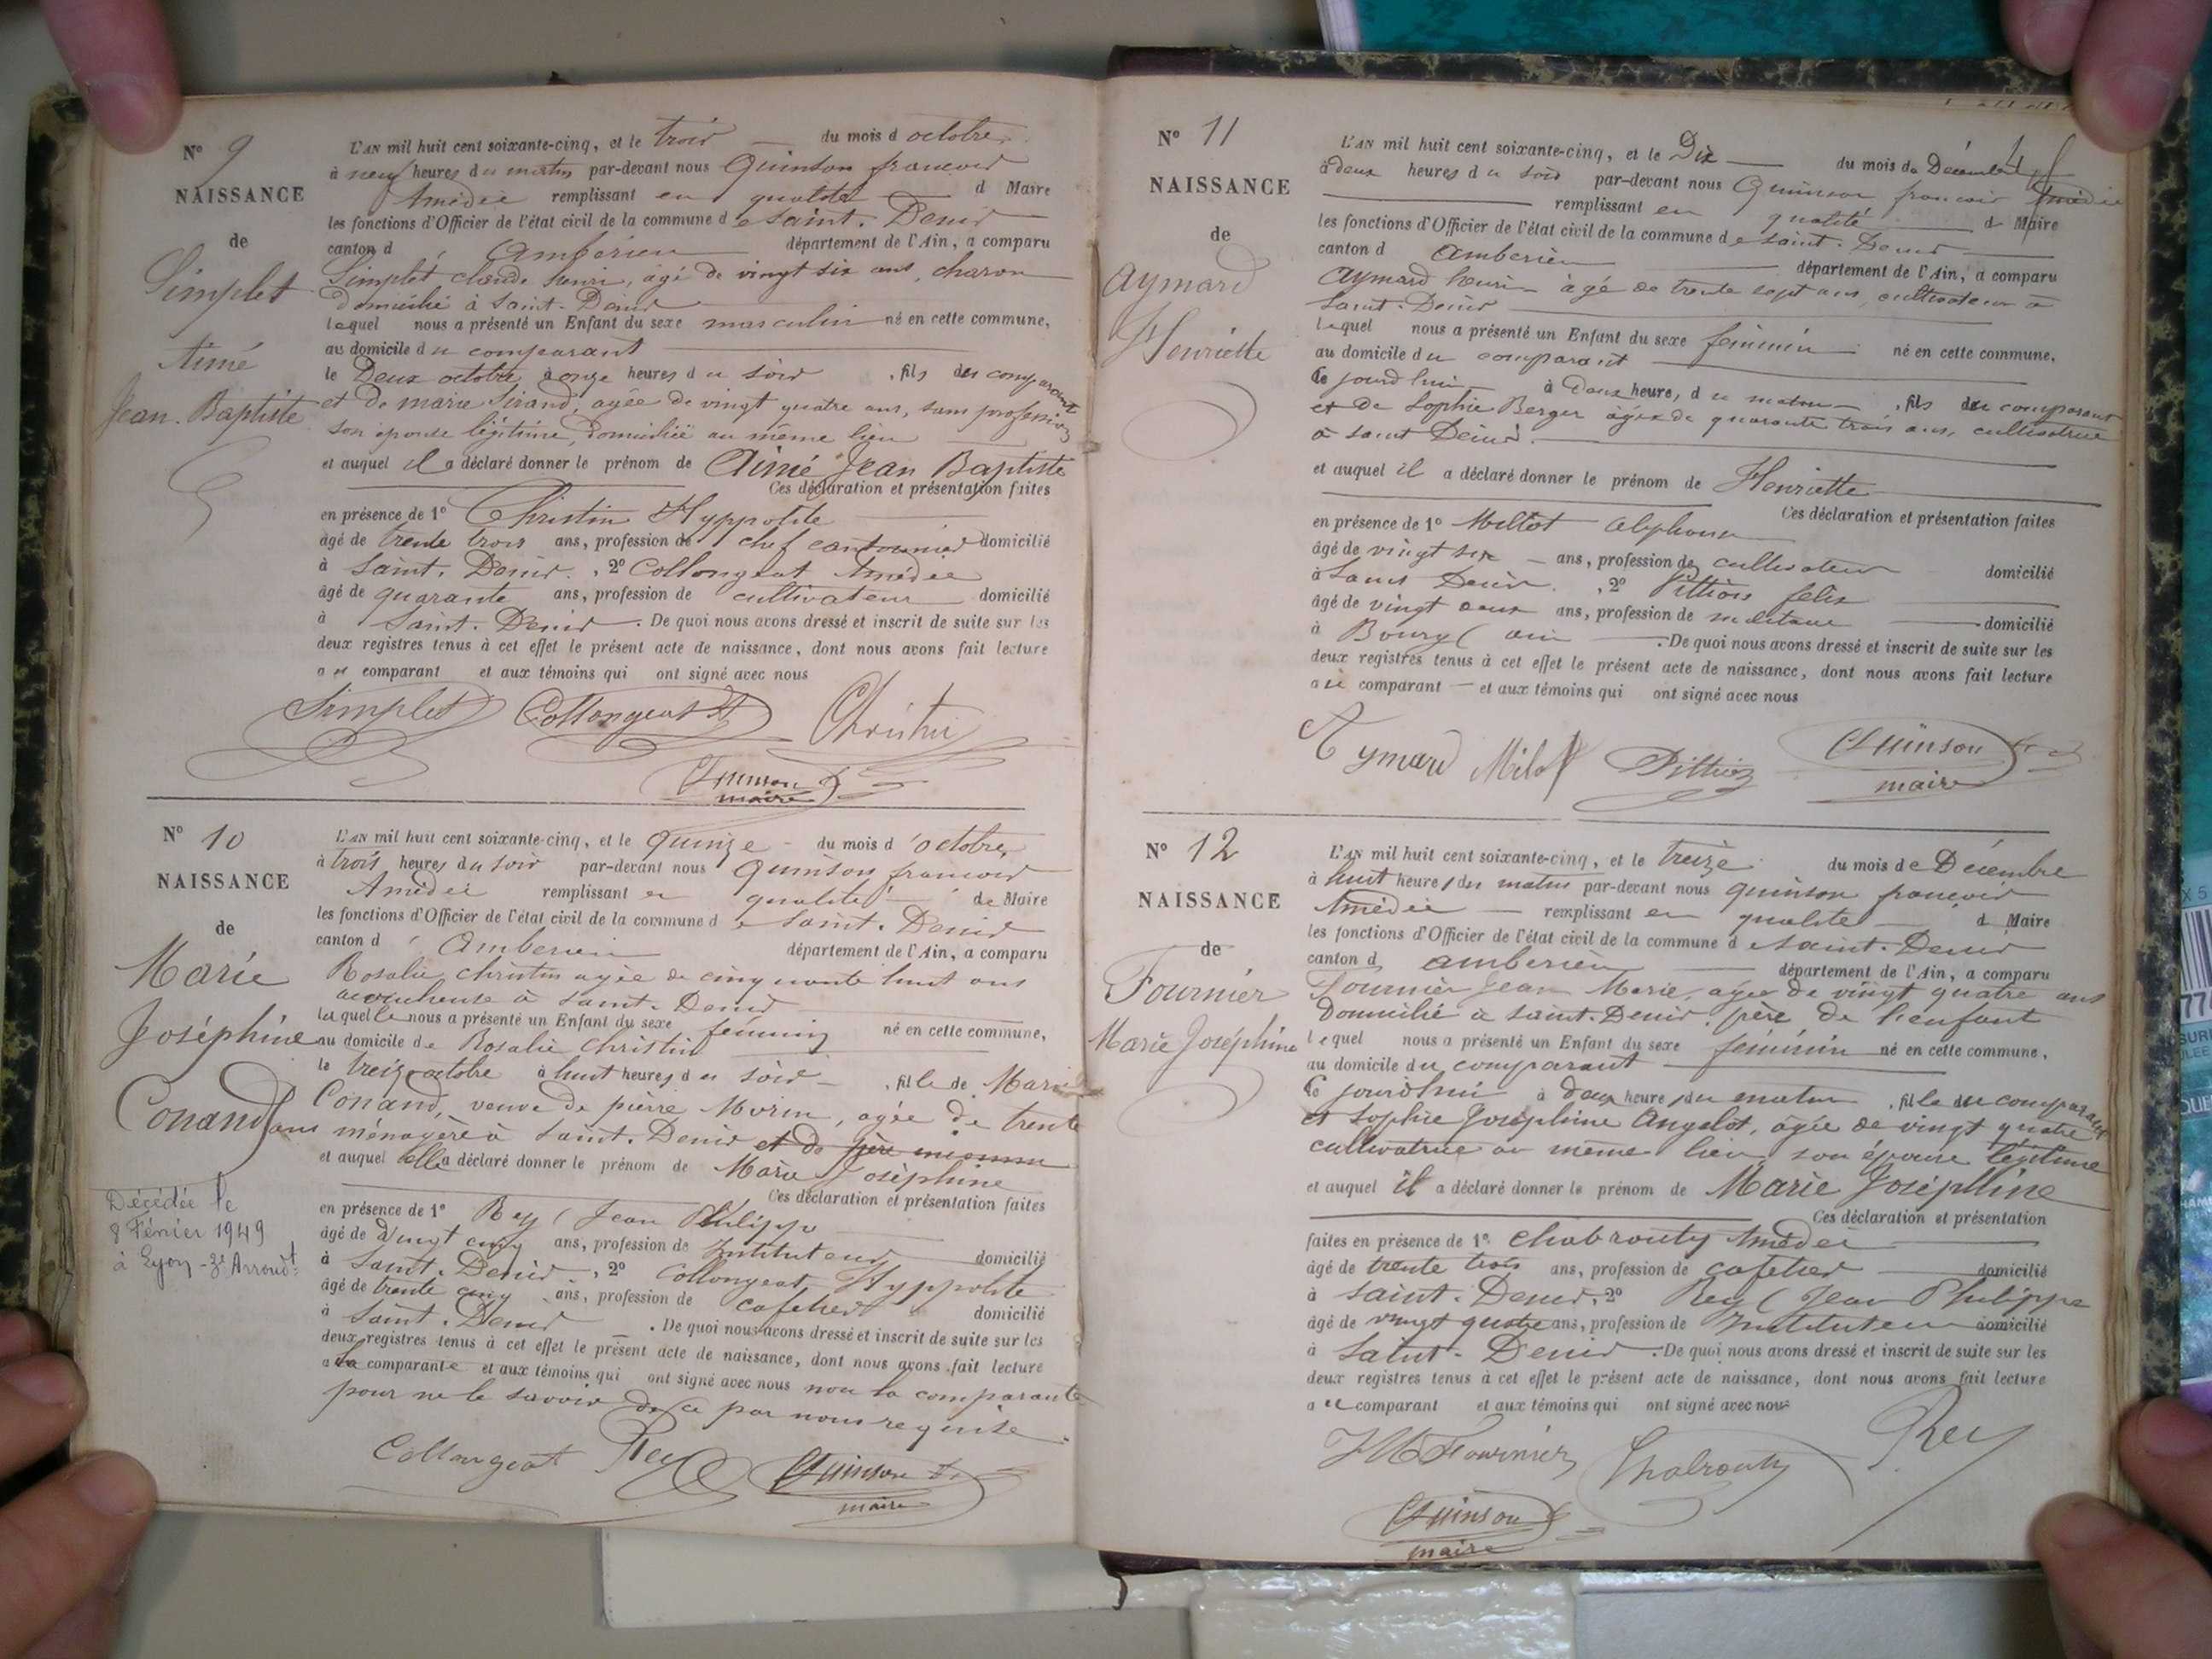 N° 9
NAISSANCE
de
Simplet
Aimé
Jean-Baptiste
L'AN mil huit cent soixante-cinq, et le trois du mois d octobre
à neuf heures du matin par-devant nous Quinson françois
Amédée remplissant en qualité d Maire
les fonctions d'Officier de l'état civil de la commune de Saint-Denis
canton d Amberieu département de l'Ain, a comparu
Simplet claude henri, agé de vingt six ans, charon
domicilié à Saint-Denis
lequel nous a présenté un Enfant du sexe masculin né en cette commune,
au domicile du comparant
le Deux octobre à onze heures du soir , fils du comparant
et de marie Sirand, agée de vingt quatre ans, sans profession
son épouse légitime, domiciliée au même lieu
et auquel il a déclaré donner le prénom de Aimé Jean Baptiste
Ces déclaration et présentation faites
en présence de 1° Christin Hyppolite
âgé de trente trois ans, profession de chef cantonnier domicilié
à Saint-Denis , 2° Collongeat Amédée
âgé de quarante ans, profession de cultivateur domicilié
à Saint-Denis . De quoi nous avons dressé et inscrit de suite sur les
deux registres tenus à cet effet le présent acte de naissance, dont nous avons fait lecture
au comparant et aux témoins qui ont signé avec nous
Simplet Collongeat Christin
Quinson
maire
N° 10
NAISSANCE
de
Marie
Joséphine
Conand
Décédée le
8 Février 1949
à Lyon - 3e Arrondt
L'AN mil huit cent soixante-cinq, et le quinze du mois d'octobre
à trois heures du soir par-devant nous Quinson françois
Amédée remplissant en qualité de Maire
les fonctions d'Officier de l'état civil de la commune de Saint-Denis
canton d'Amberieu département de l'Ain, a comparu
Rosalie christin agée de cinquante huit ans
accoucheuse à Saint-Denis
laquelle nous a présenté un Enfant du sexe féminin né en cette commune,
au domicile de Rosalie Christin
le treize octobre à huit heures du soir , fille de Marie
Conand, veuve de pierre Morin, agée de trente
ans ménagère à Saint-Denis et de père inconnu
et auquel elle a déclaré donner le prénom de Marie Joséphine
Ces déclaration et présentation faites
en présence de 1° Rey (Jean Philippe
âgé de vingt cinq ans, profession de Instituteur domicilié
à Saint-Denis , 2° Collongeat Hyppolite
âgé de trente cinq ans, profession de cafetier domicilié
à Saint-Denis . De quoi nous avons dressé et inscrit de suite sur les
deux registres tenus à cet effet le présent acte de naissance, dont nous avons fait lecture
à la comparante et aux témoins qui ont signé avec nous non la comparante
pour ne le savoir de ce par nous requise
Collongeat Rey Quinson
maire
N° 11
NAISSANCE
de
Aymard
Henriette
L'AN mil huit cent soixante-cinq, et le Dix du mois de Décembre
à deux heures du soir par-devant nous Quinson françois Amédée
remplissant en qualité d Maire
les fonctions d'Officier de l'état civil de la commune de Saint-Denis
canton d Amberieu département de l'Ain, a comparu
Aymard henri âgé de trente sept ans, cultivateur à
Saint-Denis
lequel nous a présenté un Enfant du sexe féminin né en cette commune,
au domicile du comparant
Ce jourd'hui à Deux heure, du matin , fils du comparant
et de Sophie Berger âgée de quarante trois ans, cultivatrice
à saint Denis
et auquel il a déclaré donner le prénom de Henriette
Ces déclaration et présentation faites
en présence de 1° Millot Alphonse
âgé de vingt six ans, profession de cultivateur domicilié
à Saint Denis , 2° Pittion felix
âgé de vingt deux ans, profession de militaire domicilié
à Bourg (ain . De quoi nous avons dressé et inscrit de suite sur les
deux registres tenus à cet effet le présent acte de naissance, dont nous avons fait lecture
au comparant et aux témoins qui ont signé avec nous
Aymard Milot Pittion Quinson
maire
N° 12
NAISSANCE
de
Fournier
Marie Joséphine
L'AN mil huit cent soixante-cinq, et le treize du mois de Décembre
à huit heures du matin par-devant nous quinson françois
Amédée remplissant en qualité d Maire
les fonctions d'Officier de l'état civil de la commune de Saint-Denis
canton d amberieu département de l'Ain, a comparu
Fournier Jean Marie, agée de vingt quatre ans
Domicilié à saint-Denis, père de l'enfant
lequel nous a présenté un Enfant du sexe féminin né en cette commune,
au domicile du comparant
Ce jourd'hui à deux heure du matin , fille du comparant
et Sophie Joséphine Angelot, âgée de vingt quatre
cultivatrice au même lieu son épouse légitime
et auquel il a déclaré donner le prénom de Marie Joséphine
Ces déclaration et présentation
faites en présence de 1° Chabrouty Amédée
âgé de trente trois ans, profession de cafetier domicilié
à Saint-Denis, 2° Rey (Jean Philippe
âgé de vingt quatre ans, profession de Instituteur domicilié
à Saint-Denis . De quoi nous avons dressé et inscrit de suite sur les
deux registres tenus à cet effet le présent acte de naissance, dont nous avons fait lecture
au comparant et aux témoins qui ont signé avec nous
JM Fournier Chabrouty Rey
Quinson
maire